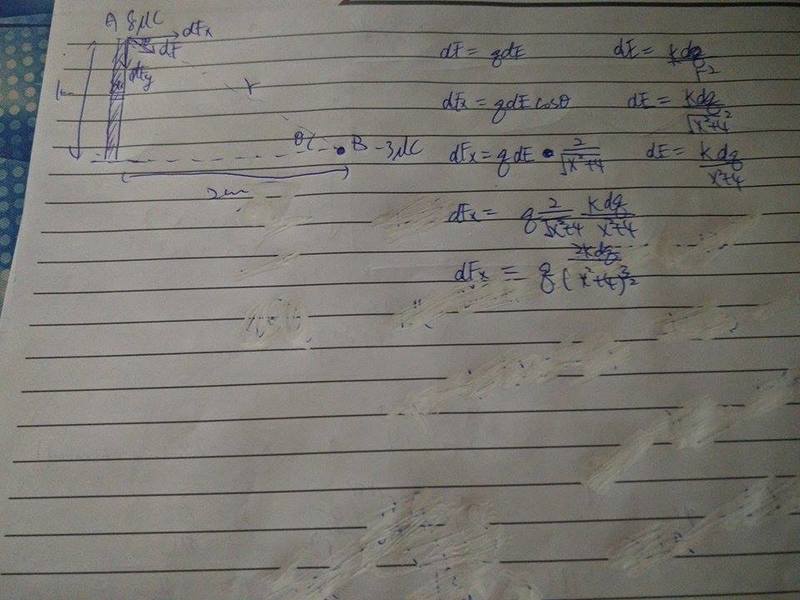 A 8μC dFx
dF
dFy
r
θ B -3μC
2cm
dF = qdE dE = kdq/r²
dFx = qdE cosθ dE = kdq/√x²+4²
dFx = q dE • 2/√x²+4 dE = kdq/x²+4
dFx = q 2/√x²+4 kdq/x²+4
dFx = q 2kdq/(x²+4)^3/2